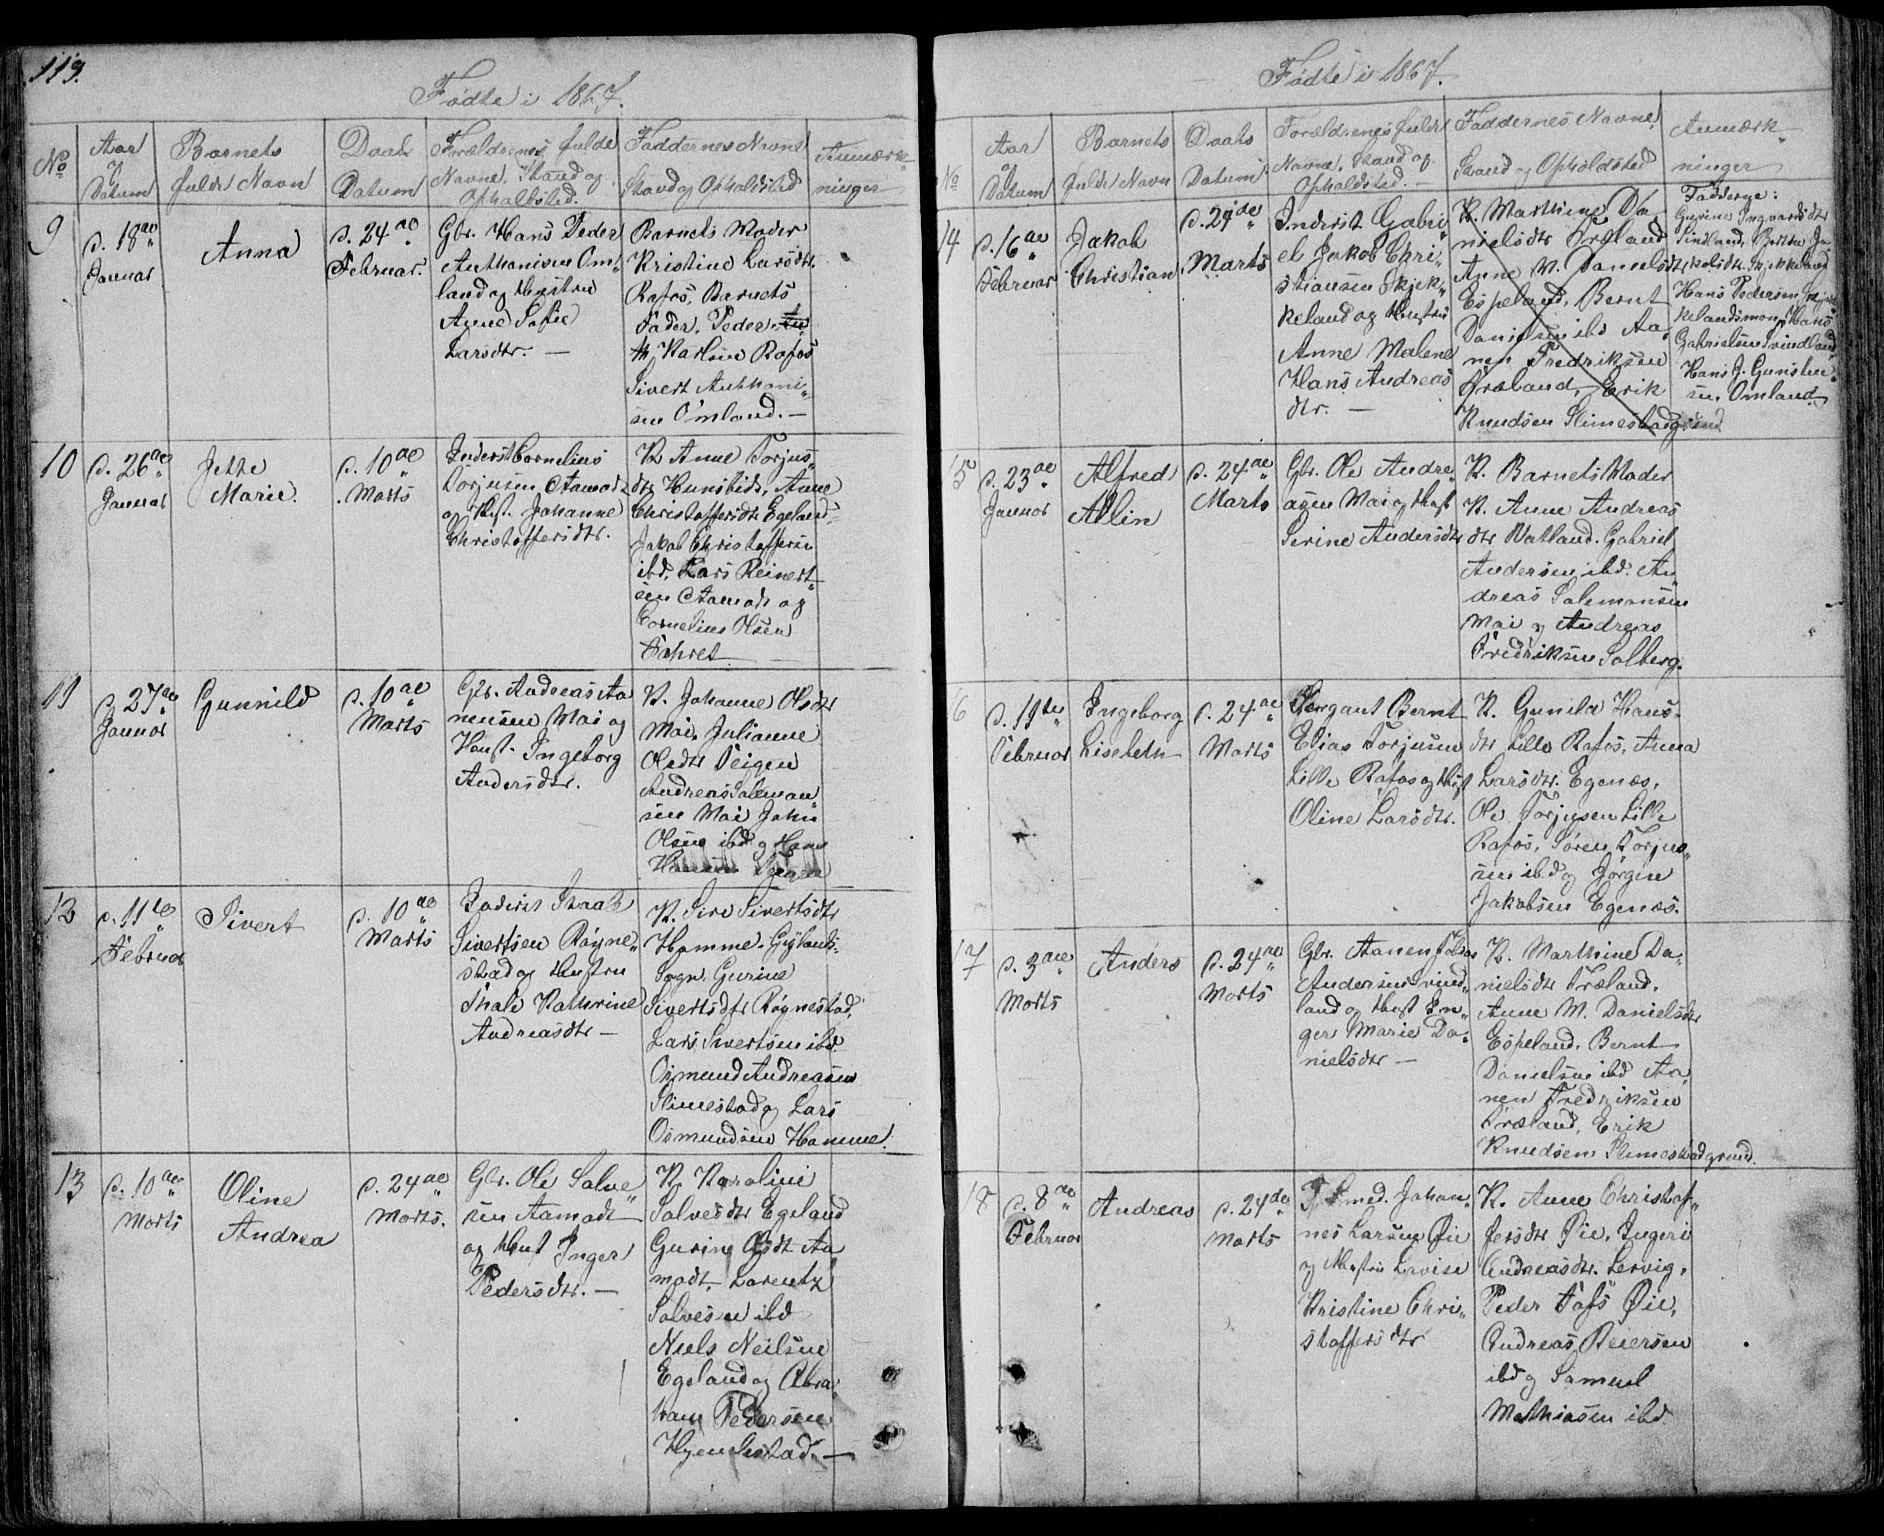 119.
Fødte i 1867.
No
Aar
og
Datum
Barnets
fulde Navn
Daabs
Datum
Forældrenes fulde
Navne, Stand og
Opholdsted.
Faddernes Navne
Stand og Opholdsted
Anmærk-
ninger
9
d. 18de
Januar
Anna
d. 24de
Februar.
Gbr. Hans Peder
Anthonisen Om-
land og Hustru
Anne Sofie
Larsdtr. —
Barnets Moder
Kristine Larsdtr.
Rafos, Barnets
Fader, Peder
Karlsen Rafos
Sivert Anthoni-
sen Omland. —
10
d. 26de
Januar
Jette
Marie.
d. 10de
Marts
Inderst Cornelius
Torjusen Aamodt
og Hust. Johanne
Christoffersdtr.
K. Anne Torjus-
dtr Hunsbedt, Anne
Christoffersdtr Egeland
Jakob Christoffersen
ibd, Lars Reinert-
sen Aamodt og
Cornelius Olsen
11
d. 27de
Januar
Gunnild
d. 10de
Marts
Gbr. Andreas Aa-
nensen Moi og
Hust. Ingeborg
Andersdtr.
K. Johanne Olsdtr
Moi, Julianne
Olsdtr Teigen
Andreas Saleman-
sen Moi John
Olsen ibd og Hans
Hansen Teigen
12
d. 11te
Februar
Sivert
d. 10de
Marts
Inderst Isaak
Sivertsen Røyne-
stad og Hustru
Thale Kathrine
Andreasdtr —
K. Sire Sivertsdtr
Homme. Gyslands-
Sogn, Gurine
Sivertsdtr Røynestad,
Lars Sivertsen ibd.
Osmund Andreasen
Slimestad og Lars
Osmundsen Homme.
13
d. 10de
Marts
Oline
Andrea
d. 24de
Marts.
Gbr. Ole Salve-
sen Aamodt
og Hust Inger
Pedersdtr. —
K. Karoline
Salvesdtr Egeland
Gurine Olsdt Aa
modt, Lorentz
Salvesen ibd
Niels Neilsen
Egeland og Abra-
ham Pedersen
Hyendestad. —
Fødte i 1867.
No
Aar
og
Datum
Barnets
fulde Navn
Daabs
Datum
Forældrenes fulde
Navne, Stand og
Opholdsted. —
Faddernes Navne,
Stand og Opholdsted
Anmærk-
ninger
14
d. 16de
Februar
Jakob
Christian
d. 24de
Marts
Inderst Gabri-
el Jakob Chri-
stiansen Skjek-
keland og Hustru
Anne Malene
Hans Andreas
dtr. —
K. Marthine Da-
nielsdtr Træland
Anne M. Danielsdtr
Espeland, Bernt
Danielsen ibd Aa-
nen Fredriksen
Træland, Erik
Knudsen Slimestadgrund
Fadderne:
Gurine Ingvardsdtr
Sindland, Berthe Ja-
kobsdtr. Skjekkeland
Hans Pedersen Skjek-
kelandsmon, Hans
Gabrielsen Svindland
Hans J. Gunsten-
sen Omland.
15
d. 23de
Januar
Alfred
Allin
d. 24de
Marts
Gbr. Ole Andre-
asen Moi og Hust
Serine Andersdtr
K. Barnets Moder
K. Anne Andreas
dtr Vatland. Gabriel
Andersen ibd. An-
dreas Salemonsen
Moi og Andreas
Fredriksen Solberg.
16
d. 19de
Februar
Ingeborg
Lisebeth
d. 24de
Marts
Sergant Bernt
Elias Torjusen
Lille Rafos og Hust
Oline Larsdtr.
K. Gunild Hans-
dtr Lille Rafos, Anna
Larsdtr. Egenæs,
Ole Torjusen Lille
Rafos, Søren Torjus-
sen ibd og Jørgen
Jakobsen Egenæs.
17
d. 3die
Marts
Anders
d. 24de
Marts
Gbr. Aanen Tobias
Andersen Svind-
land og Hust In-
ger Marie Da-
nielsdtr —
K. Marthine Da-
nielsdtr Træland,
Anne M. Danielsdtr
Espeland. Bernt
Danielsen ibd Aa-
nen Fredriksen
Træland, Erik
Knudsen Slimestadgrund.
18
d. 8de
Februar
Andreas
d. 24de
Marts
Smed. Johan-
nes Larsen Øie
og Hustru Lovise
Kristine Chri-
stoffersdtr
K. Anne Christof-
fersdtr Øie, Ingeri
Andreasdtr. Lervig,
Peder Øie,
Andreas Reiersen
ibd og Samuel
Mathiasen ibd.